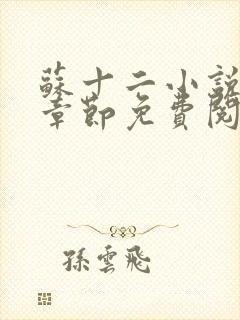 蘇十二小說
章節免費閱
孫雲飛